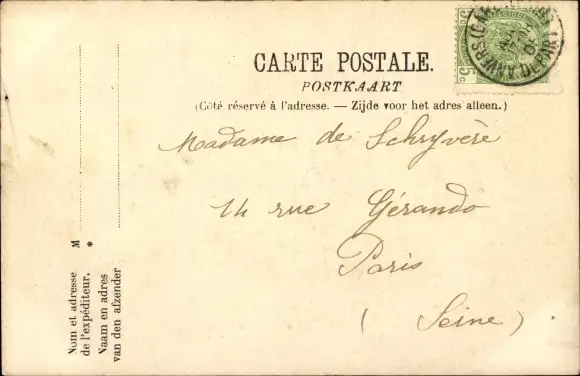 CARTE POSTALE.
POSTKAART
(Côté réservé à l'adresse. — Zijde voor het adres alleen.)
Madame de Schryvère
14 rue Gérando
Paris
(Seine)
M *
Nom et adresse
de l'expéditeur.
Naam en adres
van den afzender
5c 5c
ANVERS DEPART